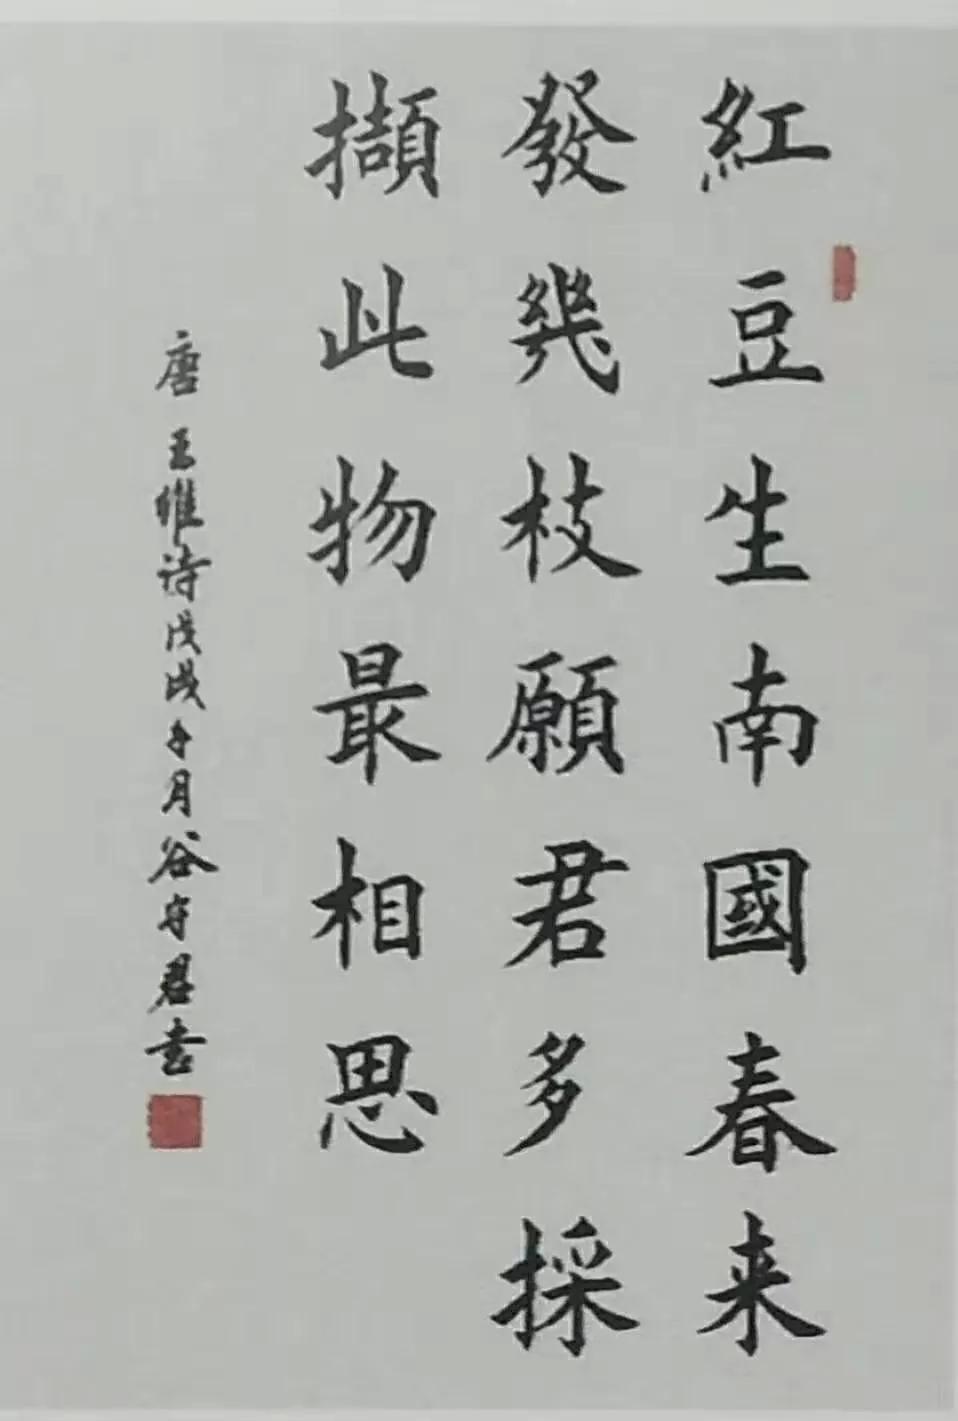 紅豆生南國春来
發幾枝願君多採
擷此物最相思
唐王維诗戊戌年月谷守君书